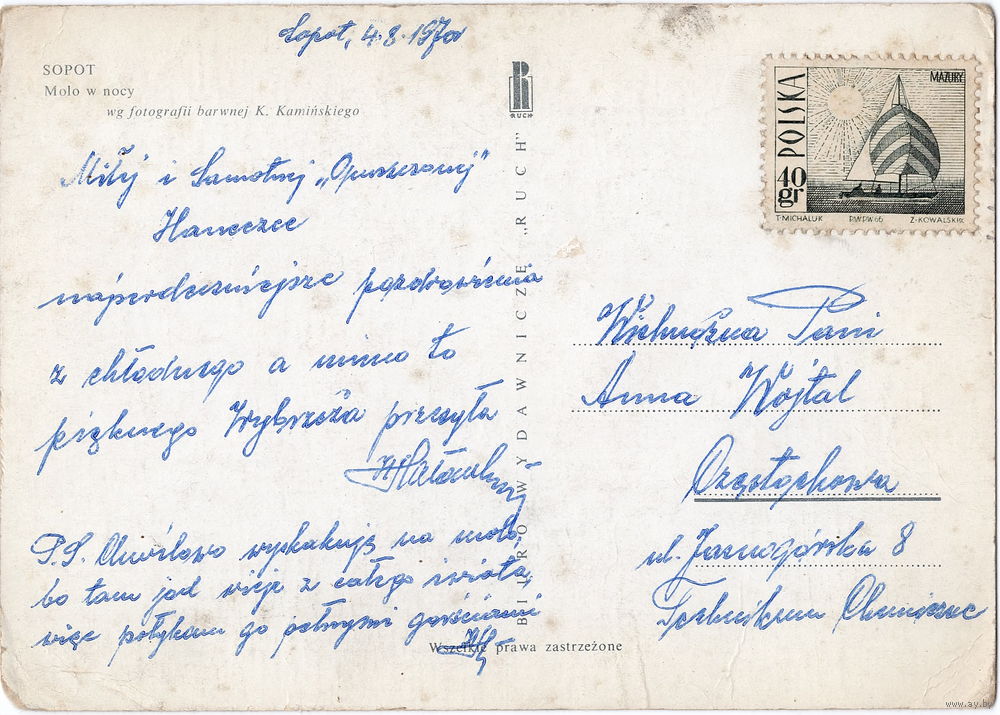 Sopot, 4.8.1970r
SOPOT
Molo w nocy
wg fotografii barwnej K. Kamińskiego
RUCH
Miłej i Samotnej „Opuszczonej”
Haneczce
najserdeczniejsze pozdrowienia
z chłodnego a mimo to
pięknego Wybrzeża przesyła
P.S. Chwilowo wyskakuję na molo,
bo tam jod wieje z całego świata,
więc połykam go pełnymi garściami
BIURO WYDAWNICZE „RUCH”
Wszelkie prawa zastrzeżone
MAZURY
POLSKA
40 gr
T·MICHALUK PWPW 66 Z·KOWALSKI
Wielmożna Pani
Anna Wójtal
Częstochowa
ul. Jasnogórska 8
Technikum Chemiczne
www.ay.by